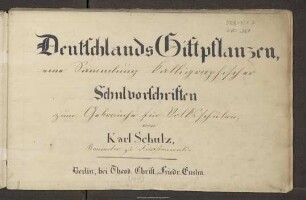 Deutschlands Giftpflanzen,
eine Sammlung kalligraphischer
Schulvorschriften
zum Gebrauche für Volksschulen,
von
Karl Schulz,
zu
Berlin, bei Theod. Christ. Friedr. Enslin.